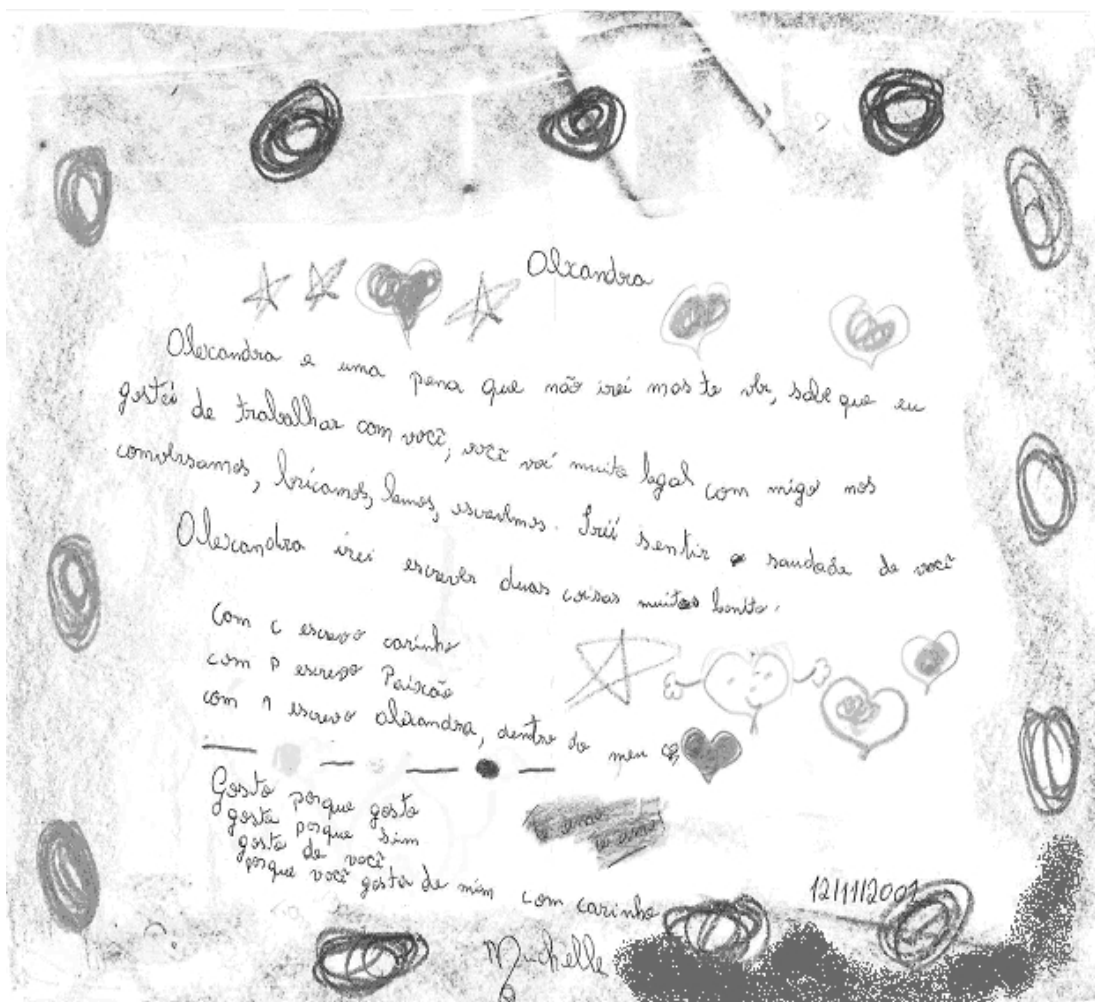 Alxandra
Alexandra e uma pena que não irei mas te ver, sabe que eu
gostei de trabalhar com você, você voi muito legal com migo nos
conversamos, bricamos, lemos, escrevemos. Irei sentir saudade de você
Alexandra irei escrever duas coisas muitas bonita.
Com c escrevo carinho
com P escrevo Paixão
com A escrevo alexandra, dentro do meu
Gosto porque gosto
gosto porque sim
gosto de você
porque você gosta de mim com carinho
te amo
te amo
12/11/2001
Michelle